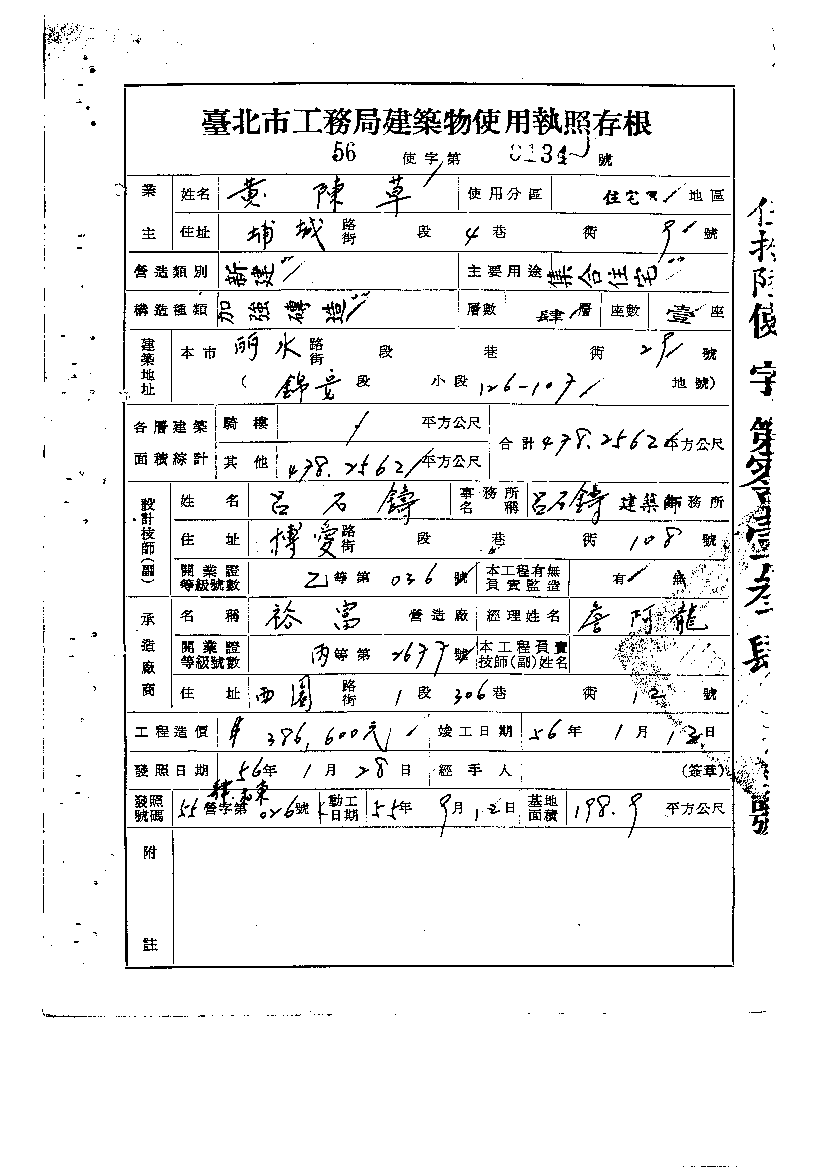 臺北市工務局建築物使用執照存根
56 使字第 0134 號
業主 姓名 黃陳草 使用分區 住宅 地區
住址 埔城 路街 段 4 巷 衖 9 號
營造類別 新建 主要用途 集合住宅
構造種類 加強磚造 層數 肆 層 座數 壹 座
建築地址 本市 丽水 路街 段 巷 衖 29 號
( 錦安 段 小段 126-107 地號)
各層建築面積綜計 騎樓 平方公尺 合計 478.2562 平方公尺
其他 478.2562 平方公尺
設計技師(副) 姓名 呂石鑄 事務所名稱 呂石鑄 建築師 務所
住址 博愛 路街 段 巷 衖 108 號
開業證等級號數 乙 等第 036 號 本工程有無負責監造 有 無
承造廠商 名稱 裕富 營造廠 經理姓名 詹阿龍
開業證等級號數 丙 等第 2677 號 本工程負責技師(副)姓名
住址 西園 路街 1 段 306 巷 衖 12 號
工程造價 386,600元 竣工日期 56 年 1 月 12 日
發照日期 56 年 1 月 28 日 經手人 (簽章)
發照號碼 55 營字第 026 號 動工日期 55 年 9 月 12 日 基地面積 198.9 平方公尺
附註
伍拾陸使字第零壹叁肆號